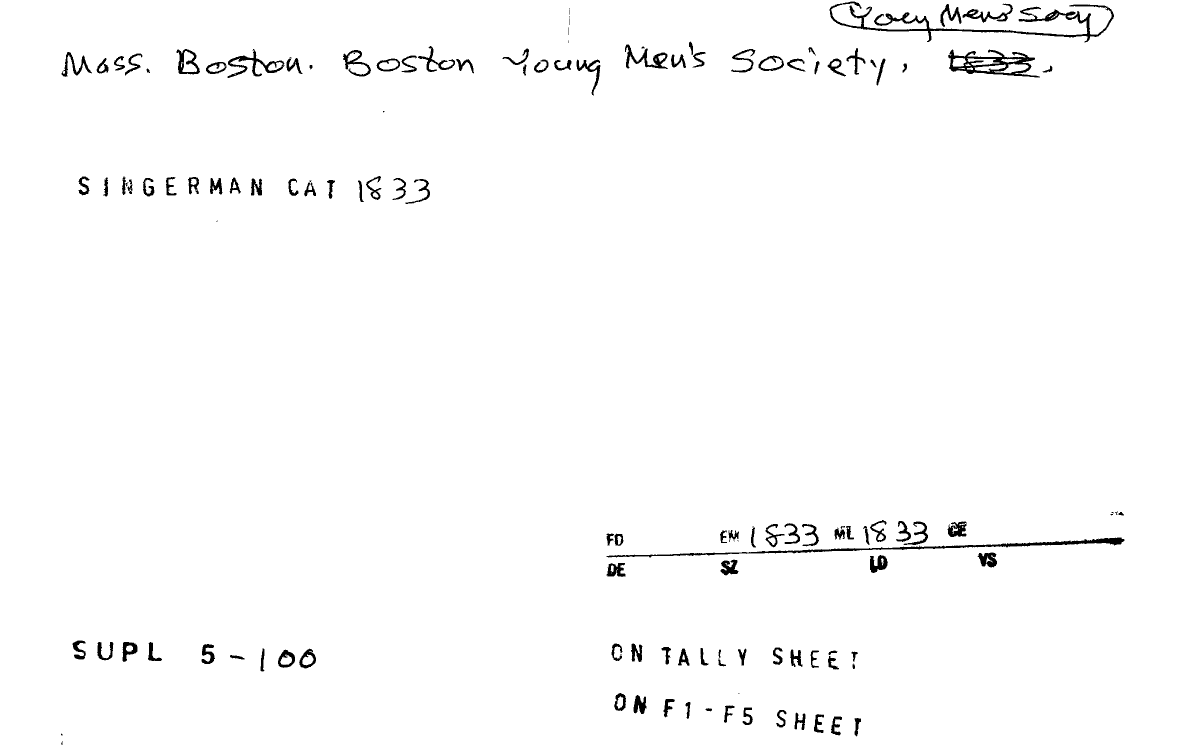 Yocy Men's Socy
Mass. Boston. Boston Young Men's Society,
SINGERMAN CAT 1833
FD EM 1833 ML 1833 CE
DE SZ LD VS
SUPL 5-100
ON TALLY SHEET
ON F1-F5 SHEET